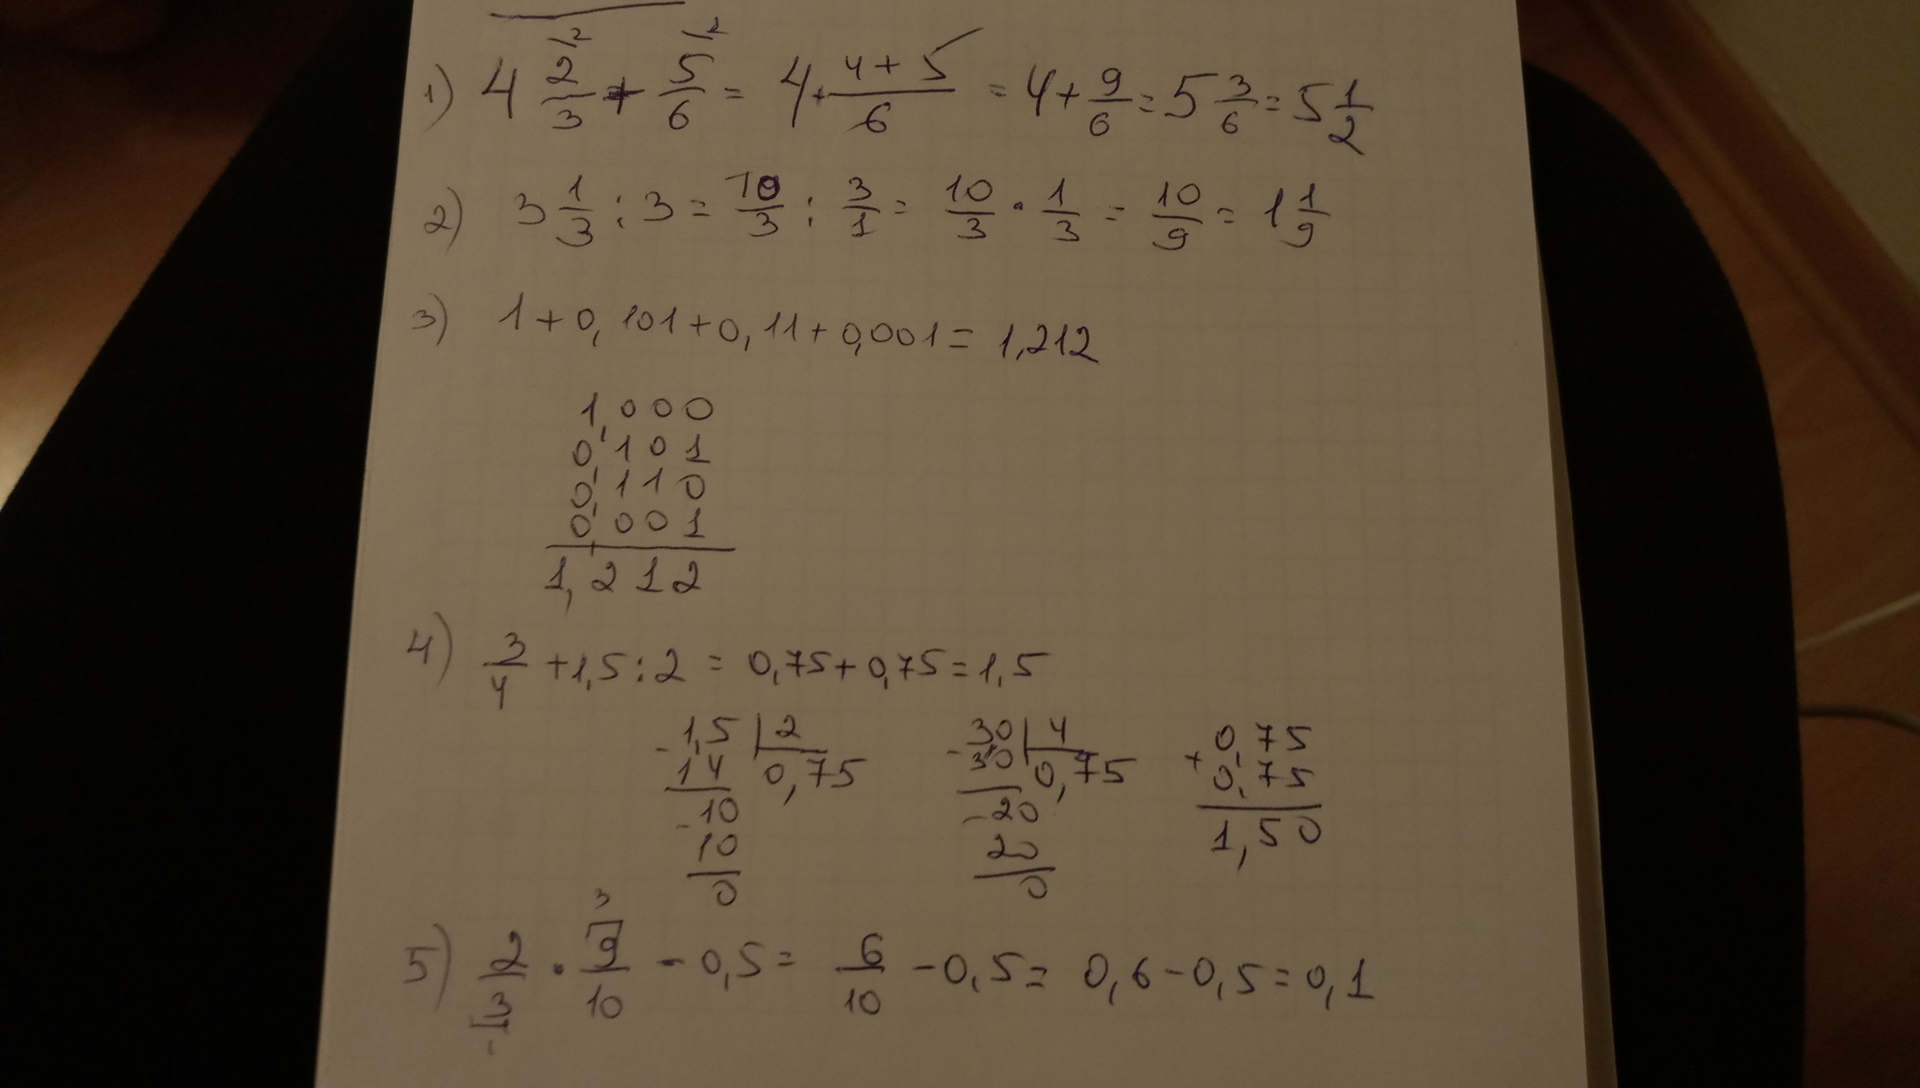 1) 4 2/3 + 5/6 = 4 + (4+5)/6 = 4 + 9/6 = 5 3/6 = 5 1/2
2) 3 1/3 : 3 = 10/3 : 3/1 = 10/3 · 1/3 = 10/9 = 1 1/9
3) 1 + 0,101 + 0,11 + 0,001 = 1,212
1,000
0,101
0,110
0,001
1,212
4) 3/4 + 1,5 : 2 = 0,75 + 0,75 = 1,5
- 1,5 | 2 - 30 | 4 + 0,75
14 0,75 30 0,75 0,75
- 10 - 20 1,50
10 20
0 0
5) 2/3 · 9/10 - 0,5 = 6/10 - 0,5 = 0,6 - 0,5 = 0,1